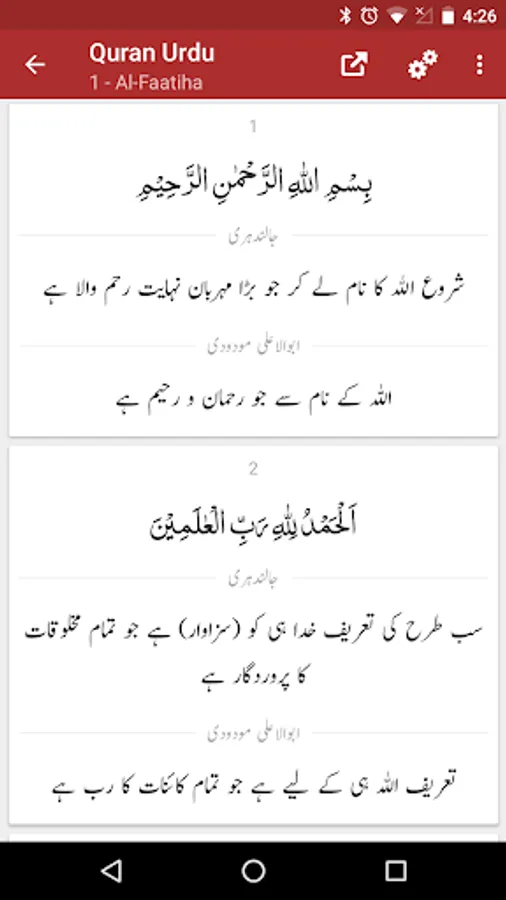 4:26
Quran Urdu
1 - Al-Faatiha
1
بِسْمِ اللّٰهِ الرَّحْمٰنِ الرَّحِيْمِ
جالندہری
شروع الله کا نام لے کر جو بڑا مہربان نہایت رحم والا ہے
ابوالاعلی مودودی
الله کے نام سے جو رحمان و رحیم ہے
2
اَلْحَمْدُ لِلّٰهِ رَبِّ الْعٰلَمِيْنَ
جالندہری
سب طرح کی تعریف خدا ہی کو (سزاوار) ہے جو تمام مخلوقات
کا پروردگار ہے
ابوالاعلی مودودی
تعریف الله ہی کے لیے ہے جو تمام کائنات کا رب ہے